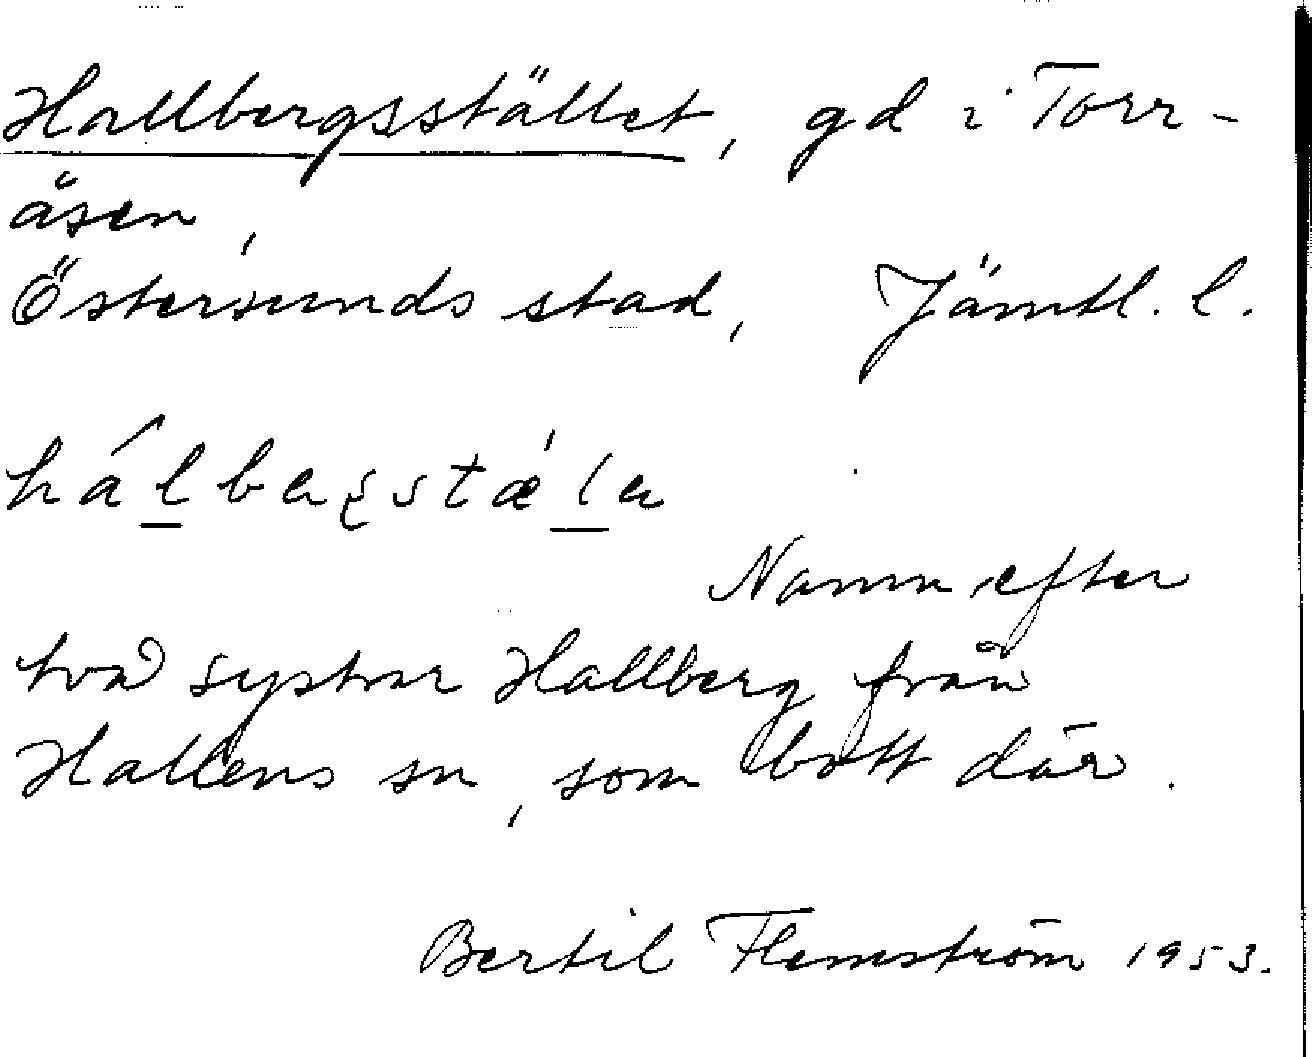 Hallbergsstället, gd i Torr-
åsen,
Östersunds stad, Jämtl. l.
Namn efter
två systrar Hallberg från
Hallens sn, som bott där.
Bertil Flemström 1953.